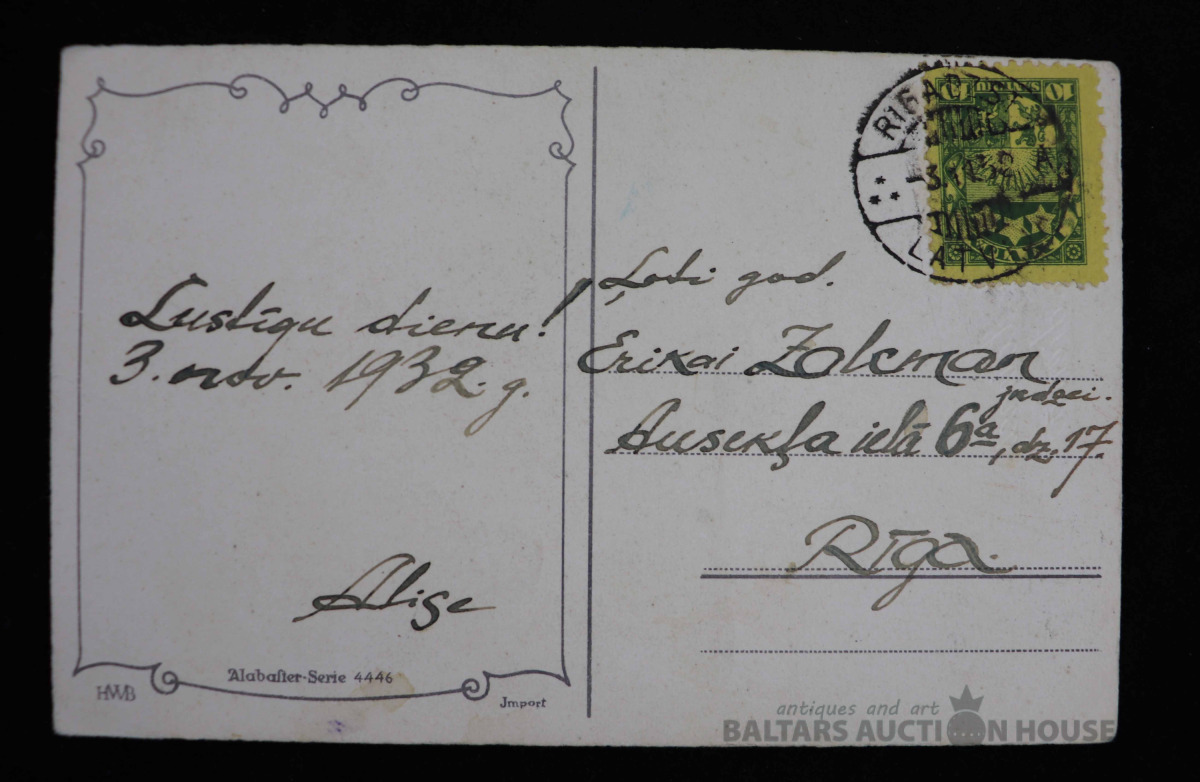 Lustīgu dienu!
3. nov. 1932. g.
Alise
Alabaster-Serie 4446
HWB
Import
10 10
RĪGA
3
LATVIJA
Ļoti god.
Erikai Zolcman
jndzei.
Ausekļa ielā 6a, dz. 17.
Rīga.
antiques and art
BALTARS AUCTION HOUSE